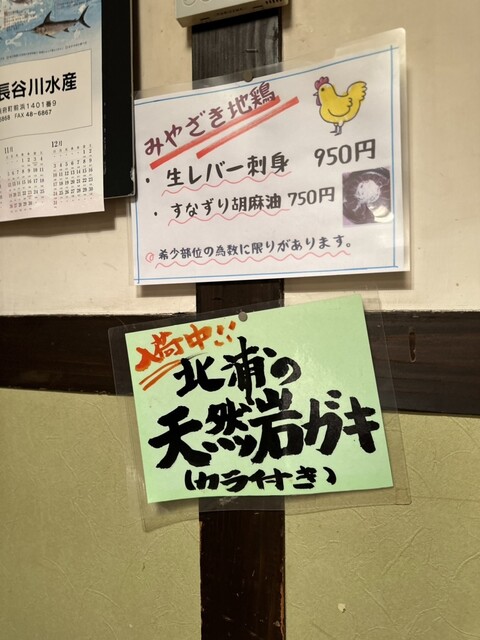 長谷川水産
町前浜1401番9
FAX 48-6867
11月
12月
みやざき地鶏
・生レバー刺身 950円
・すなずり胡麻油 750円
希少部位の為数に限りがあります。
入荷中!!
北浦の
天然岩ガキ
(カラ付き)